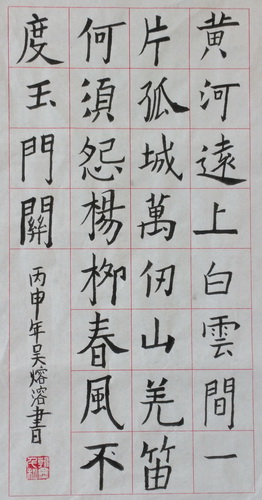 黃河遠上白雲間一
片孤城萬仞山羌笛
何須怨楊柳春風不
度玉門關
丙申年吴熔溶書